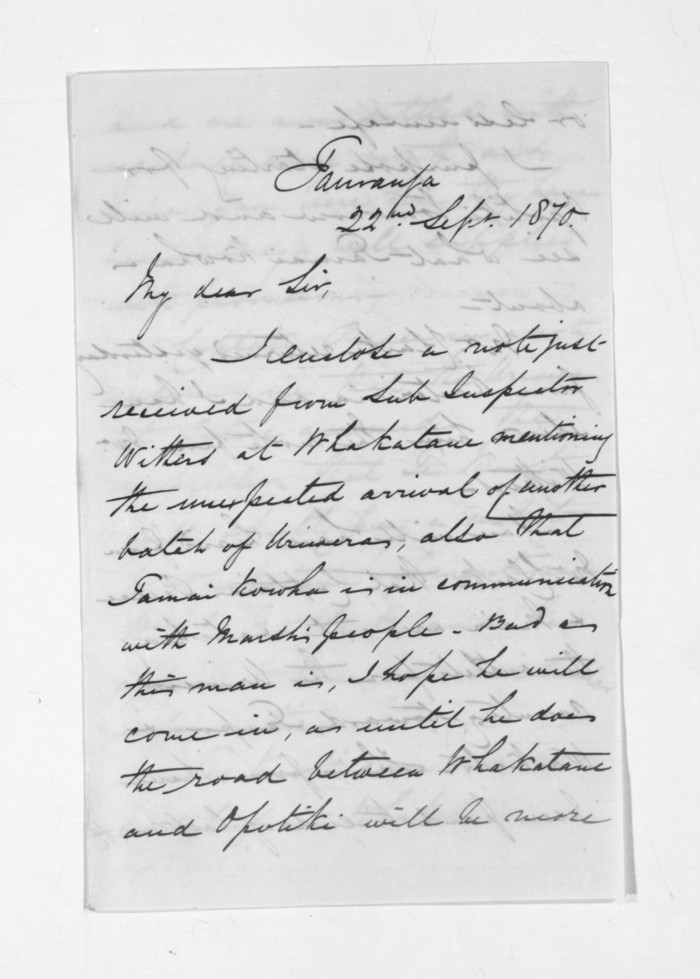 Tauranga
22nd Sept. 1870.
My dear Sir,
I enclose a note just
received from Sub Inspector
Withers at Whakatane mentioning
the unexpected arrival of another
batch of Uriweras, also that
Tamai Kowha is in communication
with Marsh's people - Bad as
this man is, I hope he will
come in, as until he does
the road between Whakatane
and Opotiki will be more